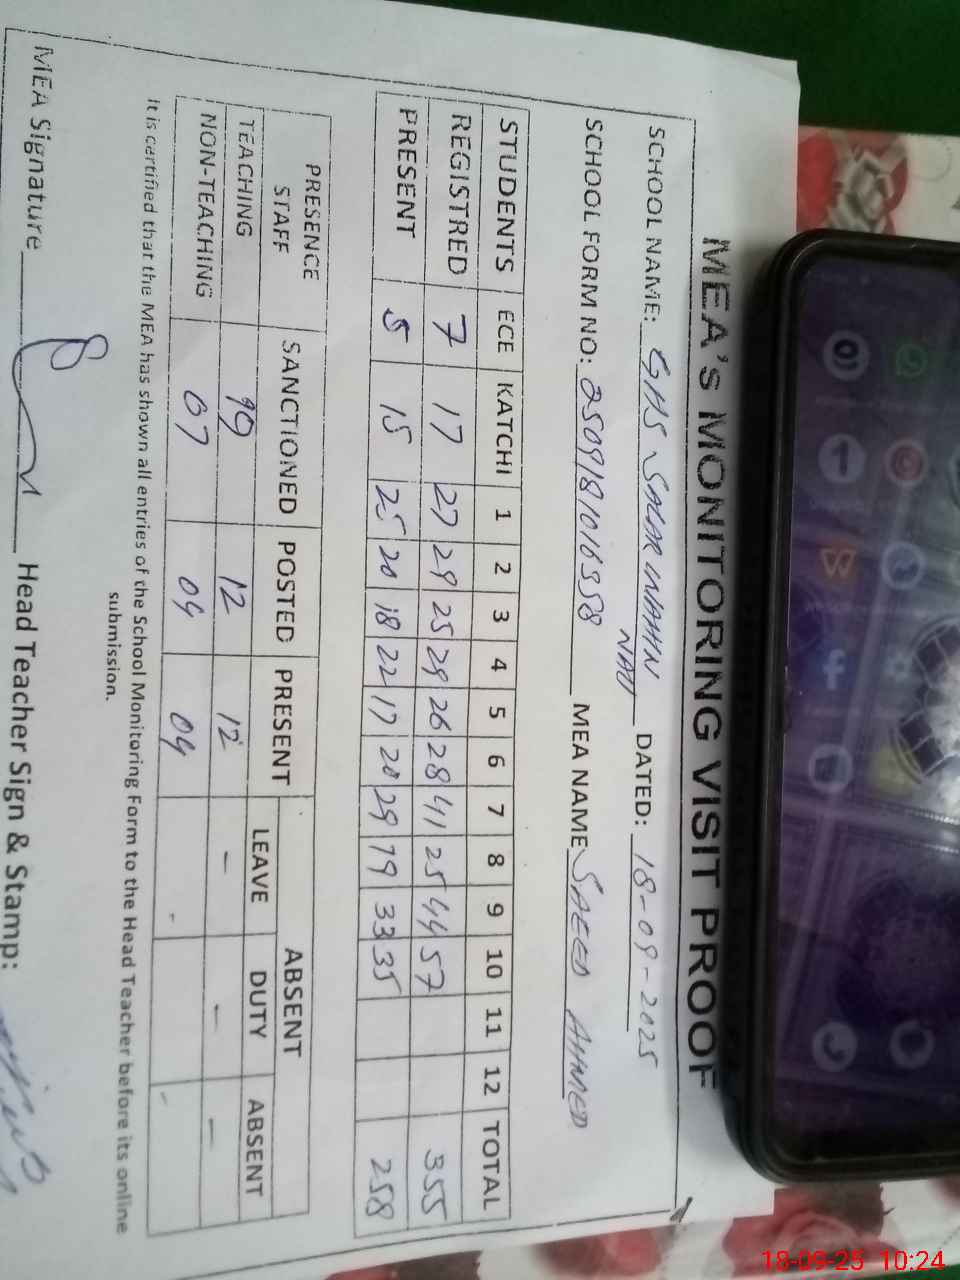 MEA's MONITORING VISIT PROOF
SCHOOL NAME: GHS DATED: 18-09-2025
SCHOOL FORM NO: 2509181016358 MEA NAME SAEED AHMED
STUDENTS ECE KATCHI 1 2 3 4 5 6 7 8 9 10 11 12 TOTAL
REGISTRED 7 17 27 29 25 29 26 28 41 25 44 57 355
PRESENT 5 15 25 20 18 22 17 20 29 19 33 35 258
PRESENCE STAFF SANCTIONED POSTED PRESENT ABSENT
LEAVE DUTY ABSENT
TEACHING 12 12 – – –
NON-TEACHING 07 04 04 - -
It is certified that the MEA has shown all entries of the School Monitoring Form to the Head Teacher before its online
submission.
MEA Signature Head Teacher Sign & Stamp:
18-09-25 10:24